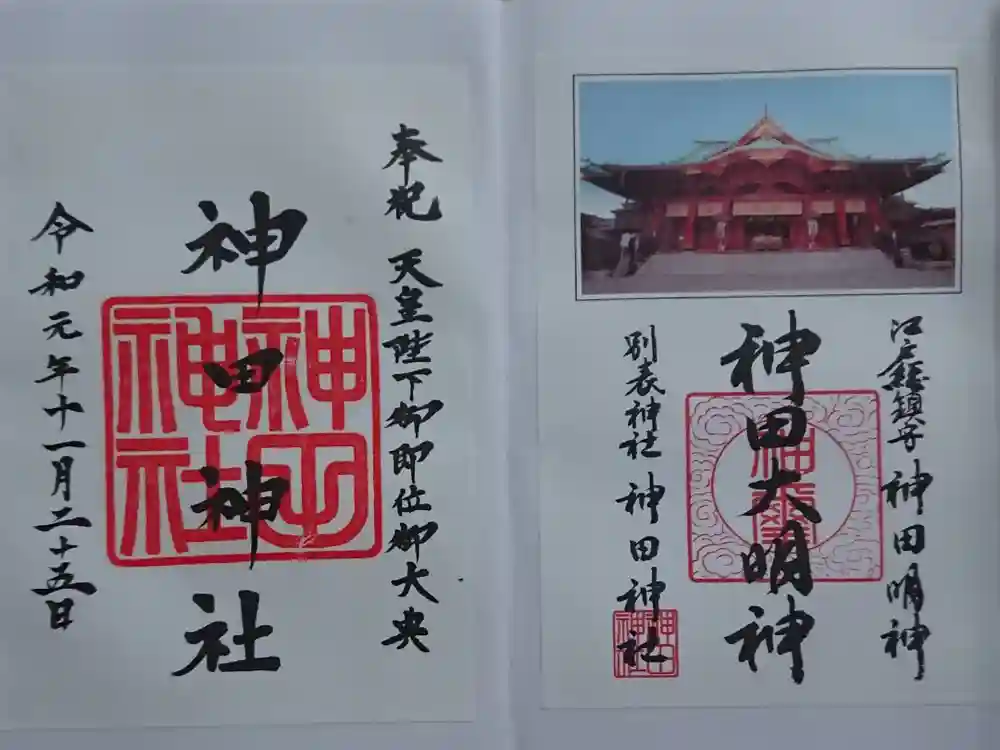 江戸総鎮守 神田明神
神田大明神
別表神社 神田神社
神田神社
奉祝 天皇陛下御即位御大典
神田神社
神田神社
令和元年十一月二十五日